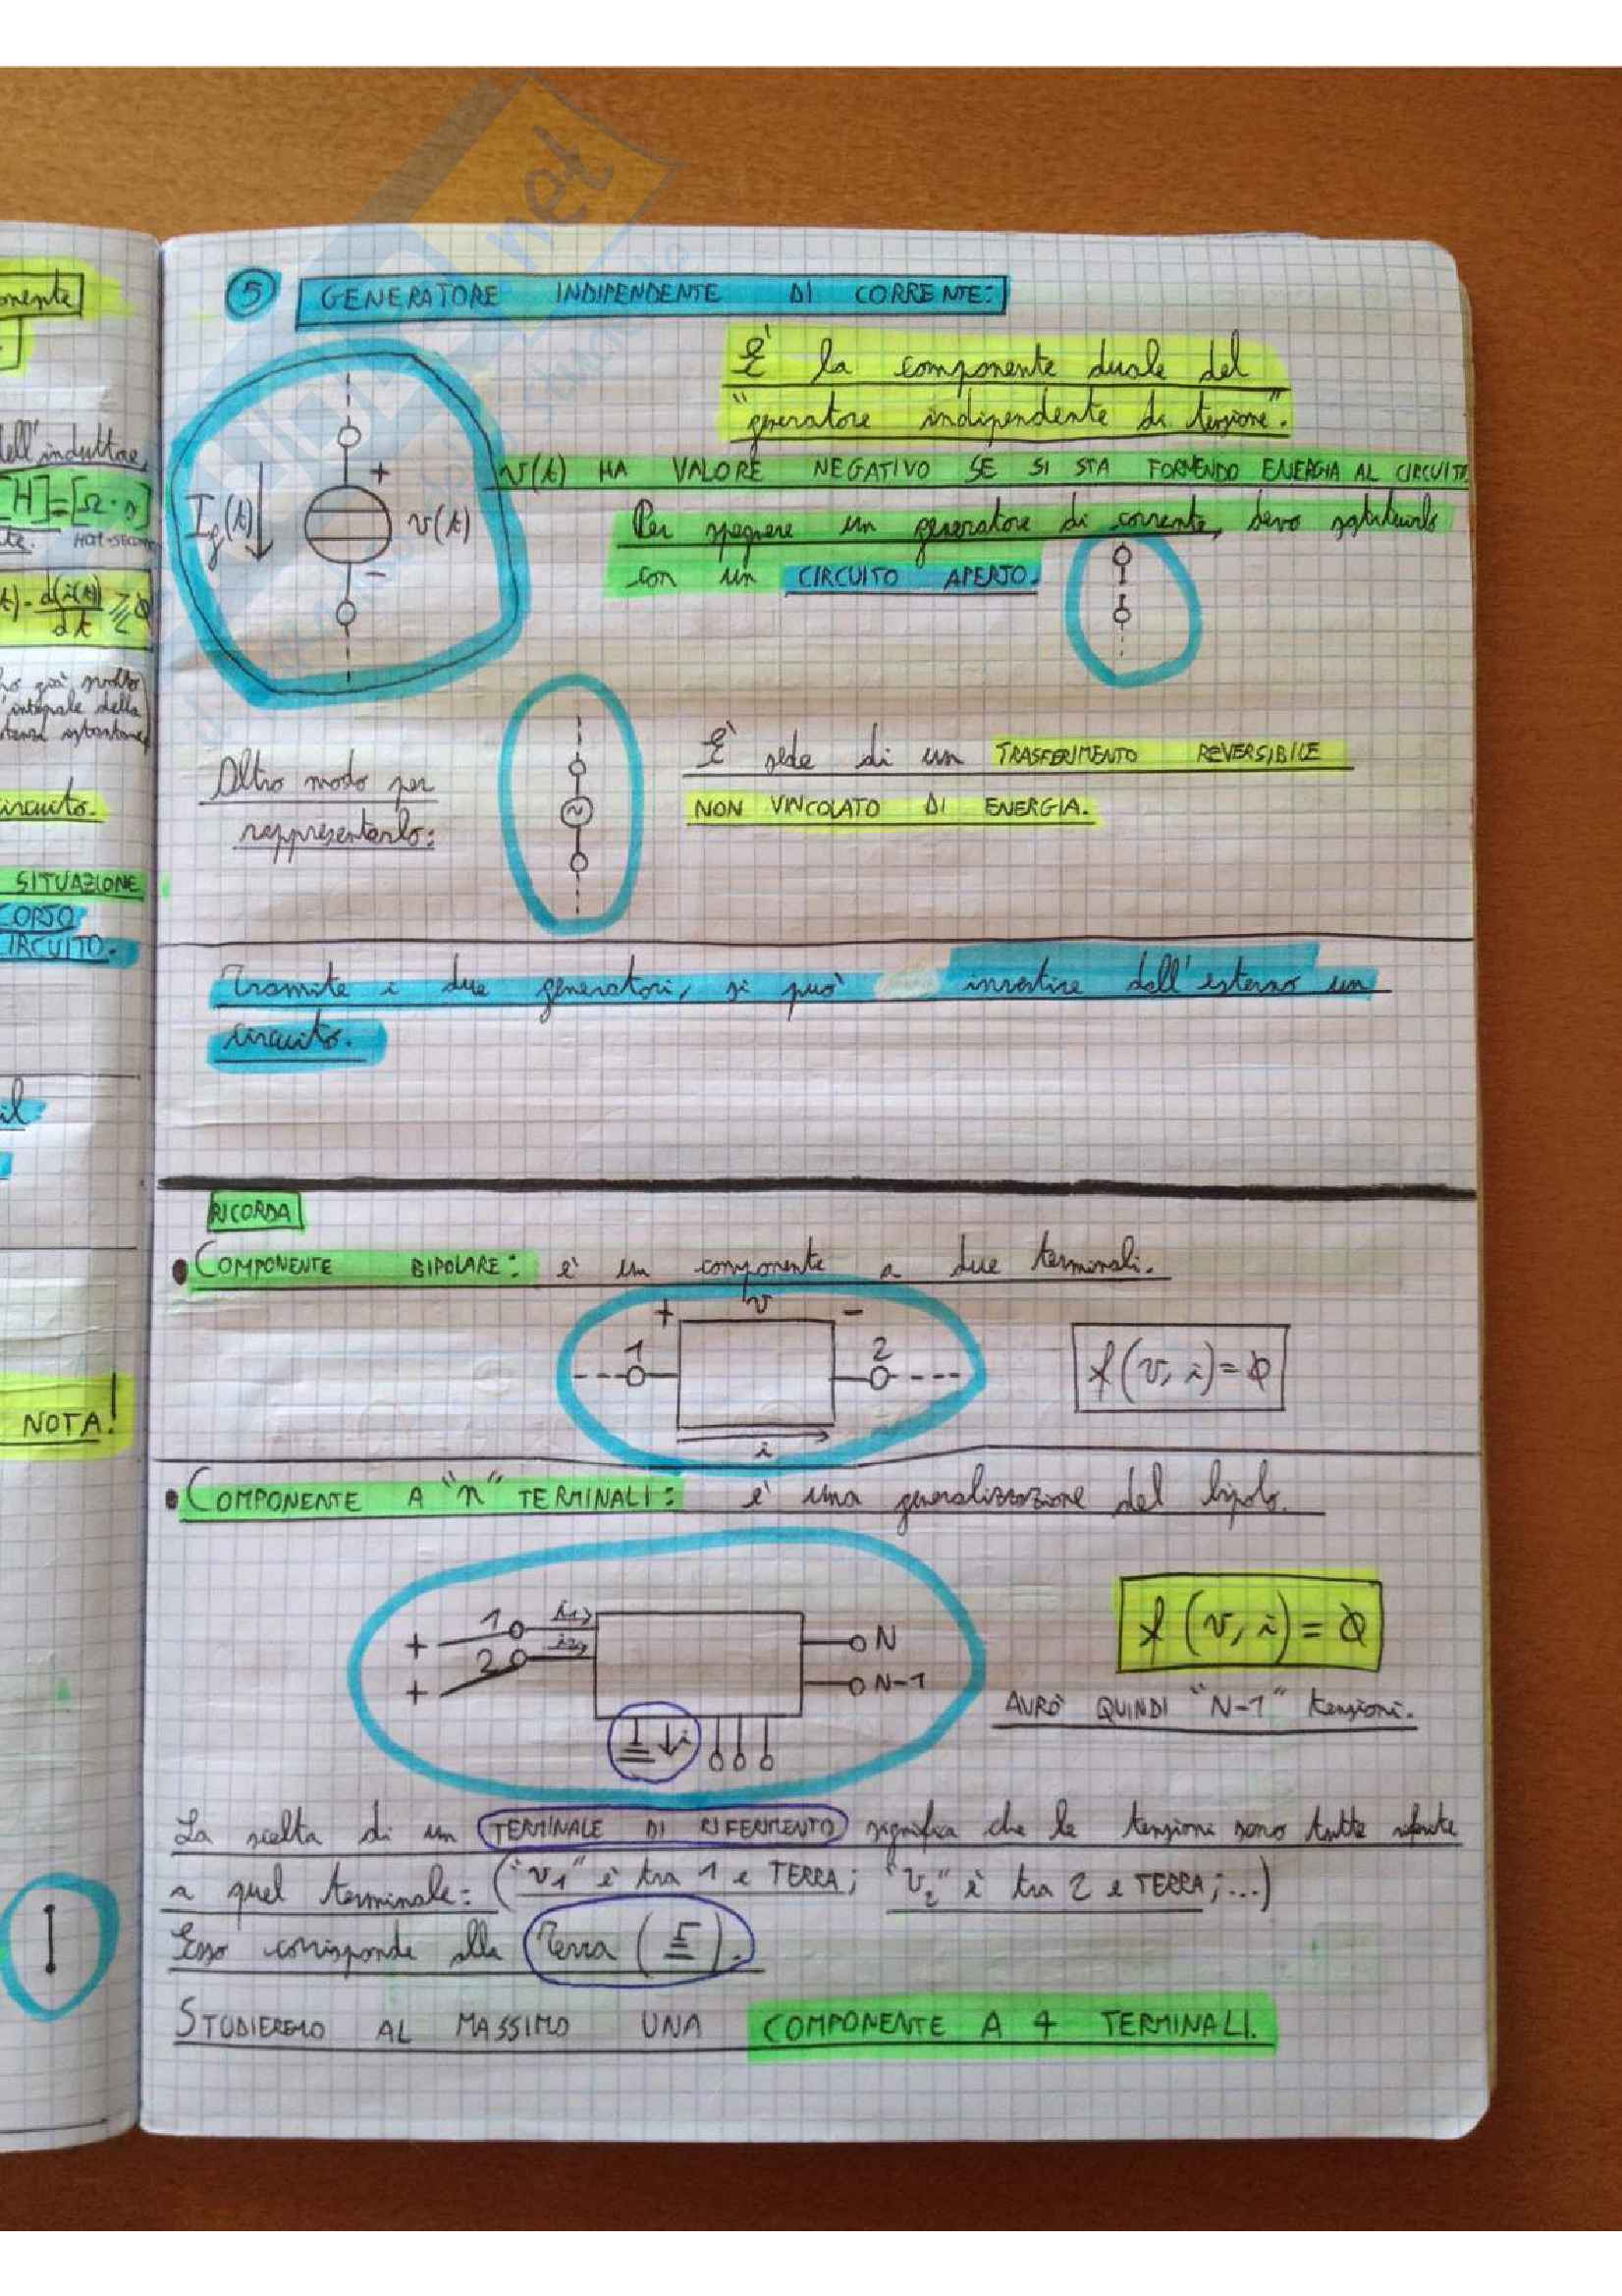 net
5 GENERATORE INDIPENDENTE DI CORRENTE:
È la componente duale del
"generatore indipendente di tensione".
v(t) HA VALORE NEGATIVO SE SI STA FORNENDO ENERGIA AL CIRCUITO.
Per spegnere un generatore di corrente, devo sostituirlo
con un CIRCUITO APERTO.
Ig(t)
+
v(t)
-
Altro modo per
rappresentarlo:
~
È sede di un TRASFERIMENTO REVERSIBILE
NON VINCOLATO DI ENERGIA.
Tramite i due generatori, si può investire dall'esterno un
circuito.
RICORDA
• COMPONENTE BIPOLARE: è un componente a due terminali.
+ v -
1 2
i
f(v, i)=0
• COMPONENTE A "n" TERMINALI: è una generalizzazione del bipolo.
+ 1 i1 N
+ 2 i2 N-1
i
f (v, i) = 0
AVRÒ QUINDI "N-1" tensioni.
La scelta di un TERMINALE DI RIFERIMENTO significa che le tensioni sono tutte riferite
a quel terminale: ("v1" è tra 1 e TERRA; "v2" è tra 2 e TERRA;...)
Esso corrisponde alla Terra ( ).
STUDIEREMO AL MASSIMO UNA COMPONENTE A 4 TERMINALI.
onente
dell'induttore,
[H]=[Ω·s]
d(i(t))
dt
ho già svolto
integrale della
circuito.
SITUAZIONE
CORSO
CIRCUITO.
il
NOTA!